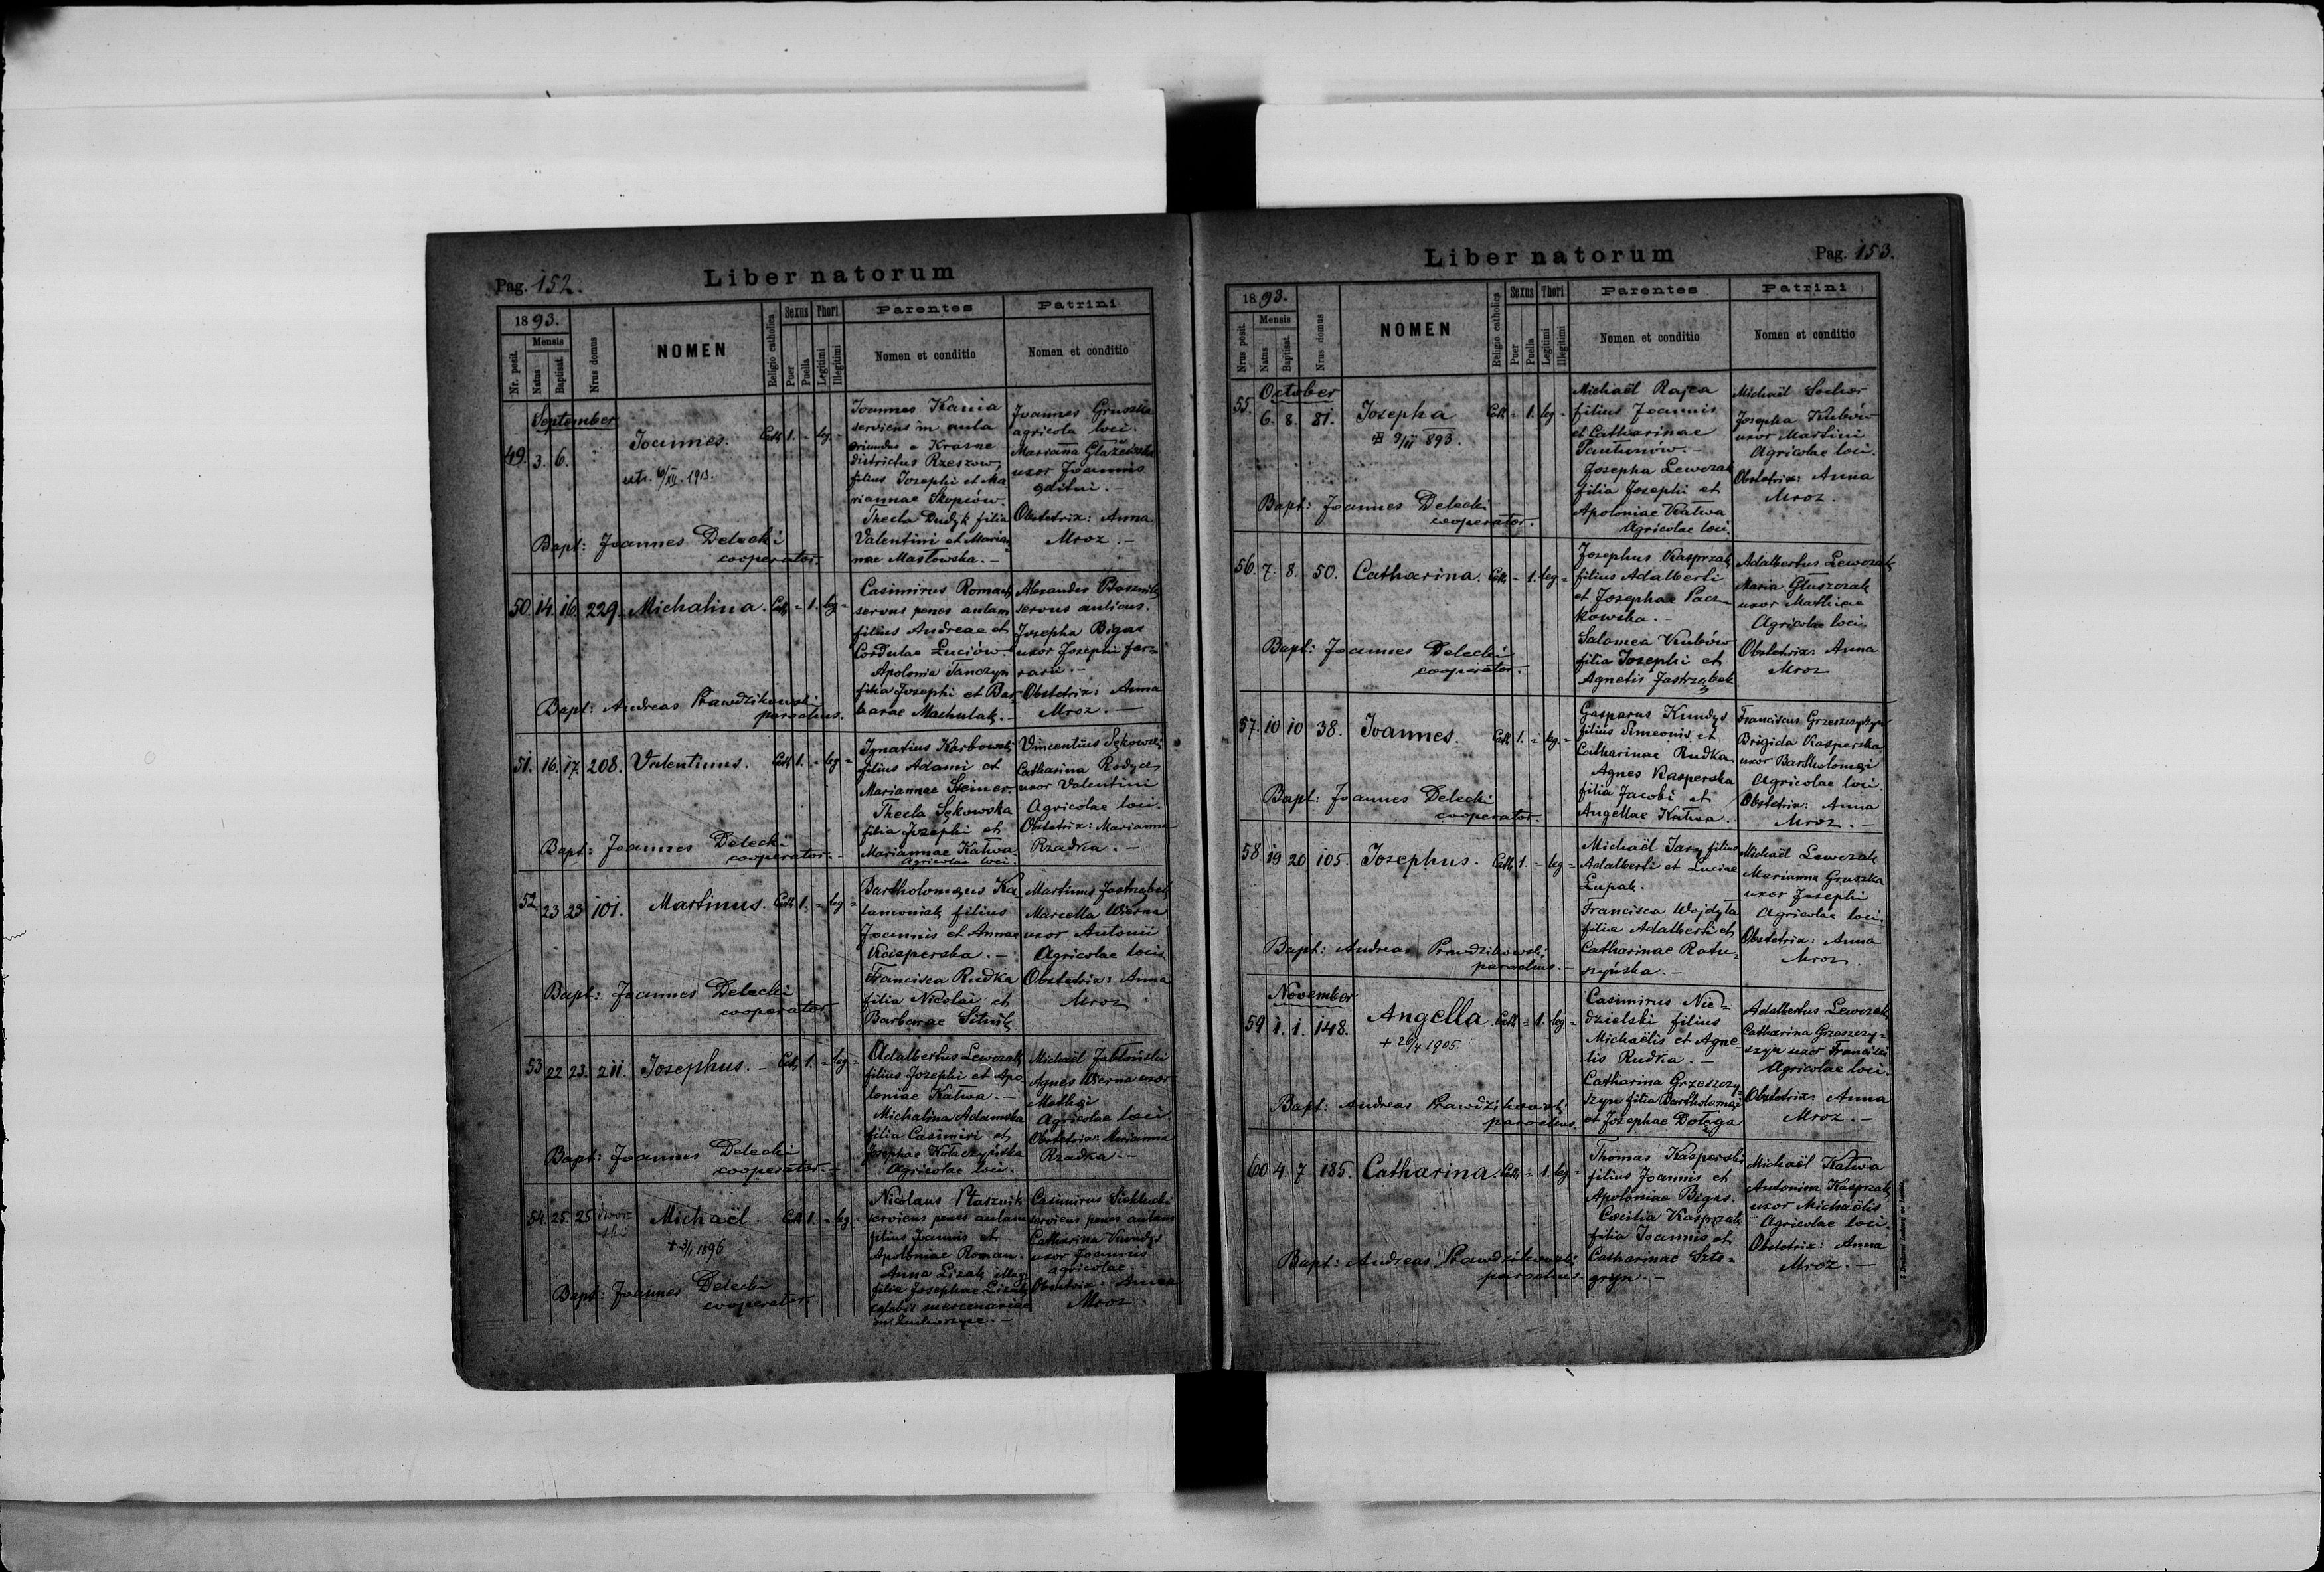 Pag. 152.
Liber natorum
1893.
Nr. posit.
Mensis
Natus
Baptisat.
Nrus domus
NOMEN
Religio catholica
Sexus
Puer
Puella
Thori
Legitimi
Illegitimi
Parentes
Nomen et conditio
Patrini
Nomen et conditio
September
49. 3. 6.
Joannes.
Cath 1. - leg -
Joannes Kania
serviens in aula
oriundus e Krasne
districtus Rzeszow,
filius Josephi et Ma
riannae Skopców.
Thecla Dudyk filia
Valentini et Marian
nae Masłowska. -
Joannes Gruszka
agricola loci.
Marianna
uxor Joannis
Obstetrix: Anna
Mroz. -
Bapt: Joannes Delecki
cooperator.
50. 14. 16. 229. Michalina. Cath - 1. leg -
Casimirus Romach
servus penes aulam
filius Andreae et
Cordulae Luciów.
Apolonia Tanczyn
filia Josephi et Bar
barae Machulak. -
Alexander Ptasznik
servus aulicus.
Josepha Bigas
uxor Josephi fer=
rarii. -
Obstetrix: Anna
Mroz. -
Bapt: Andreas Prawdzikowski
parochus.
51. 16. 17. 208. Valentinus. Cath 1. - leg -
Ignatius Karbowski
filius Adami et
Mariannae Steiner.
Thecla Sękowska
filia Josephi et
Mariannae Katwa.
Agricolae loci.
Vincentius Sękowski
Catharina Rodycz
uxor Valentini
Agricolae loci.
Obstetrix: Marianna
Rzadka. -
Bapt: Joannes Delecki
cooperator. -
52. 23 23 101. Martinus. Cath 1. - leg -
Bartholomaeus Ka
lamoniak filius
Joannis et Annae
Kasperska. -
Francisca Rudka
filia Nicolai et
Barbarae Sitnik
Martinus Jastrzębek
Marcella Wierna
uxor Antonii
Agricolae loci.
Obstetrix: Anna
Mroz
Bapt: Joannes Delecki
cooperator.
53 22 23. 211. Josephus. - Cath 1. - leg -
Adalbertus Lewczak
filius Josephi et Apo
loniae Katwa. -
Michalina Adamska
filia Casimiri et
Josephae Kołaczyńska
Agricolae loci.
Michaël Jabłoński
Agnes Wierna uxor
Mathaei
Agricolae loci
Obstetrix: Marianna
Rzadka. -
Bapt: Joannes Delecki
cooperator. -
54. 25. 25 Michaël. Cath 1. - leg -
1896
Nicolaus Ptasznik
serviens penes aulam
filius Joannis et
Apoloniae Roman.
Anna Lizak illeg
filia Josephae Lizak
caelebis mercenariae
Casimirus
serviens penes aulam
Catharina Kundys
uxor Joannis
agricolae. -
Obstetrix: Anna
Mroz.
Bapt: Joannes Delecki
cooperator.
Liber natorum
Pag. 153.
1893.
Nrus posit.
Mensis
Natus
Baptisat.
Nrus domus
NOMEN
Religio catholica
Sexus
Puer
Puella
Thori
Legitimi
Illegitimi
Parentes
Nomen et conditio
Patrini
Nomen et conditio
October
55. 6. 8. 81. Josepha Cath - 1. leg -
9/11 893.
Michaël Rajca
filius Joannis
et Catharinae
Pantunów. -
Josepha Lewczak
filia Josephi et
Apoloniae Katwa
Agricolae loci.
Michaël Sochor
Josepha Kubów
uxor Martini
Agricolae loci.
Obstetrix: Anna
Mroz.
Bapt: Joannes Delecki
cooperator.
56. 7. 8. 50. Catharina. Cath - 1. leg -
Josephus Kasprzak
filius Adalberti
et Josephae Pacz=
kowska. -
Salomea Kubów
filia Josephi et
Agnetis Jastrzębek
Adalbertus Lewczak
Maria Głuszczak
uxor Mathiae
Agricolae loci.
Obstetrix: Anna
Mroz
Bapt: Joannes Delecki
cooperator.
57. 10 10 38. Joannes. Cath 1. - leg. -
Gasparus Kundys
filius Simeonis et
Catharinae Rudka
Agnes Kasperska
filia Jacobi et
Angellae Katwa.
Franciscus Grzeszczyszyn
Brigida Kasperska
uxor Bartholomaei
Agricolae loci.
Obstetrix: Anna
Mroz. -
Bapt: Joannes Delecki
cooperator. -
58. 19 20 105. Josephus. Cath 1. - leg -
Michaël Jary filius
Adalberti et Luciae
Łupak.
Francisca Wojdyła
filia Adalberti et
Catharinae Ratu=
szyńska. -
Michaël Lewczak
Marianna Gruszka
uxor Josephi
Agricolae loci.
Obstetrix: Anna
Mroz.
Bapt: Andreas Prawdzikowski
parochus. -
November
59 1. 1. 148. Angella Cath - 1. leg -
+ 26/4 1905.
Casimirus Nie=
dzielski filius
Michaëlis et Agne=
tis Rudka. -
Catharina Grzeszczy
szyn filia Bartholomaei
et Josephae Dołęga
Adalbertus Lewczak
Catharina Grzeszczy=
szyn uxor Francisci
Agricolae loci.
Obstetrix: Anna
Mroz. -
Bapt: Andreas Prawdzikowski
parochus.
60 4. 7 185. Catharina. Cath - 1. leg -
Thomas Kasperski
filius Joannis et
Apoloniae Bigas.
Cæcilia Kasprzak
filia Joannis et
Catharinae Szto=
gryn. -
Michaël Katwa
Antonina Kasprzak
uxor Michaëlis
Agricolae loci.
Obstetrix: Anna
Mroz. -
Bapt: Andreas Prawdzikowski
parochus.